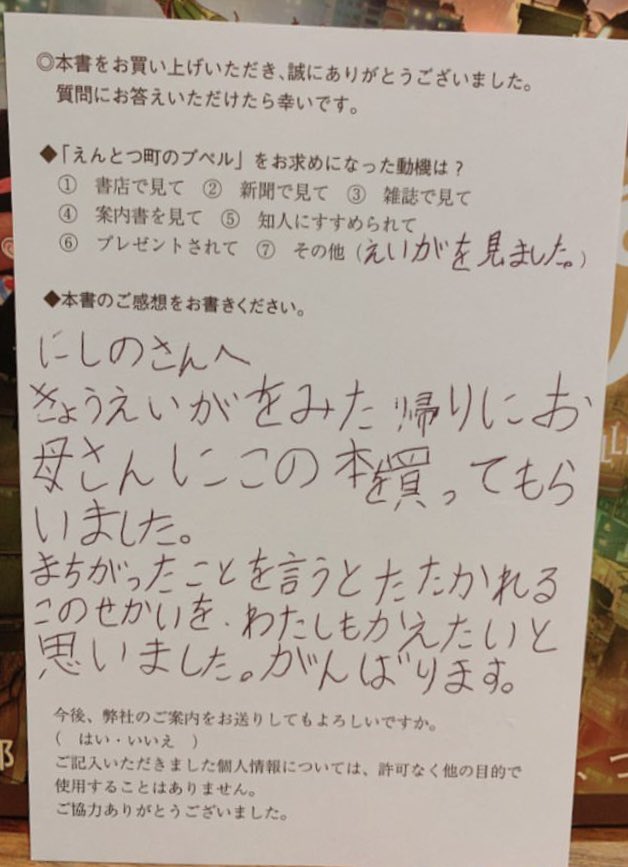 ◎本書をお買い上げいただき、誠にありがとうございました。
質問にお答えいただけたら幸いです。
◆「えんとつ町のプペル」をお求めになった動機は?
① 書店で見て ② 新聞で見て ③ 雑誌で見て
④ 案内書を見て ⑤ 知人にすすめられて
⑥ プレゼントされて ⑦ その他(えいがを見ました。)
◆本書のご感想をお書きください。
にしのさんへ
きょうえいがをみた帰りにお
母さんにこの本を買ってもら
いました。
まちがったことを言うとたたかれる
このせかいを、わたしもかえたいと
思いました。がんばります。
今後、弊社のご案内をお送りしてもよろしいですか。
( はい・いいえ )
ご記入いただきました個人情報については、許可なく他の目的で
使用することはありません。
ご協力ありがとうございました。